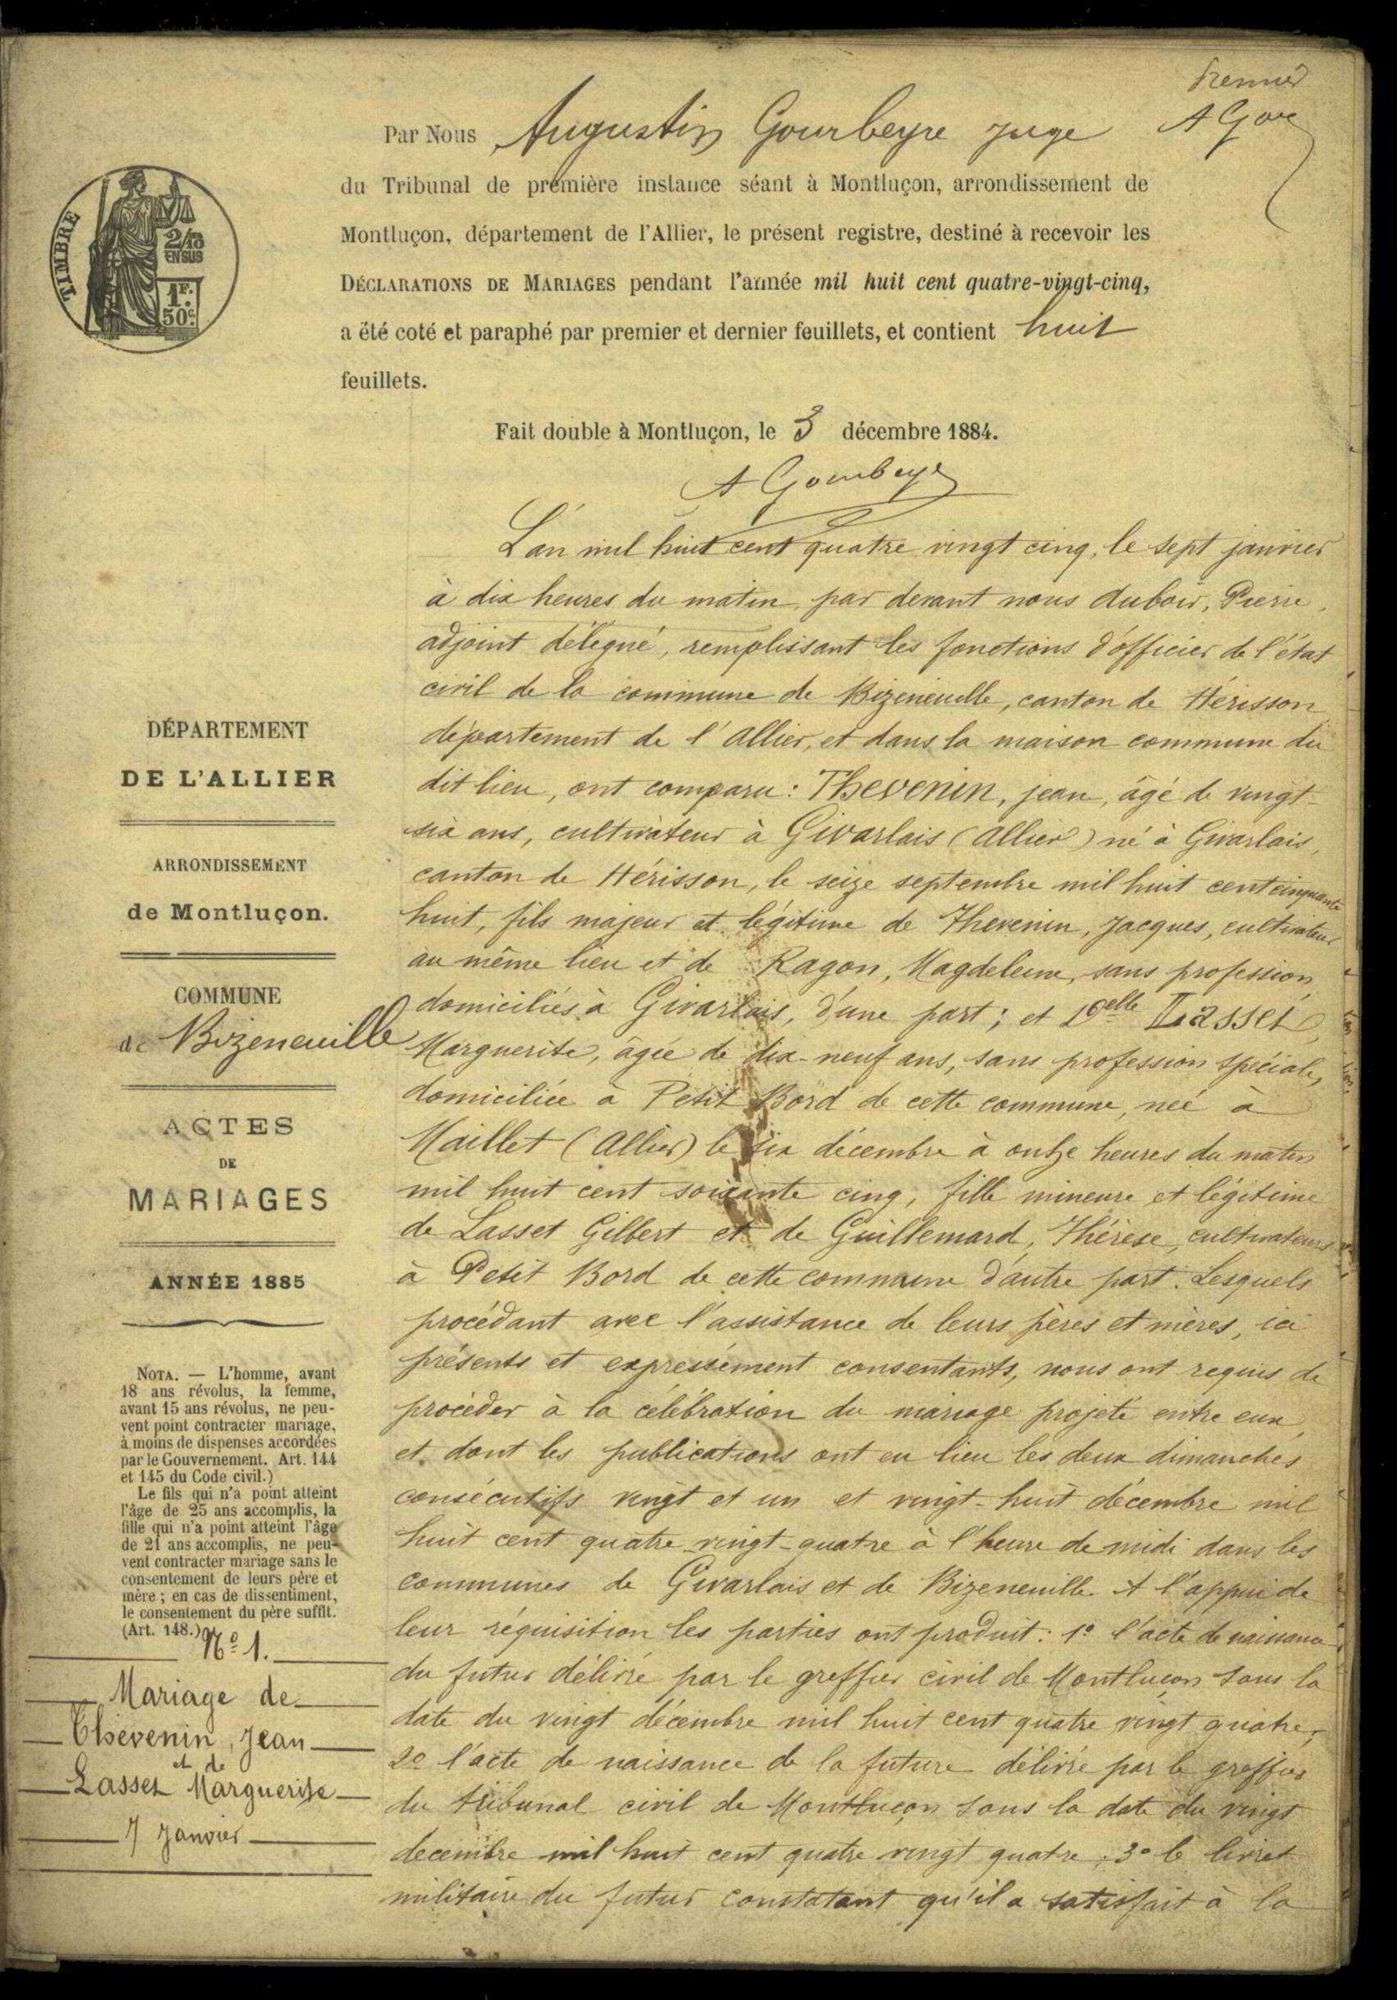 premier
A Gou
Par Nous Augustin Gourbeyre juge
du Tribunal de première instance séant à Montluçon, arrondissement de
Montluçon, département de l'Allier, le présent registre, destiné à recevoir les
DÉCLARATIONS DE MARIAGES pendant l'année mil huit cent quatre-vingt-cinq,
a été coté et paraphé par premier et dernier feuillets, et contient huit
feuillets.
Fait double à Montluçon, le 3 décembre 1884.
A Gourbeyre
TIMBRE
2/10
EN SUS
1 F.
50 c.
DÉPARTEMENT
DE L'ALLIER
ARRONDISSEMENT
de Montluçon.
COMMUNE
de Bizeneuille
ACTES
DE
MARIAGES
ANNÉE 1885
NOTA. — L'homme, avant
18 ans révolus, la femme,
avant 15 ans révolus, ne peu-
vent point contracter mariage,
à moins de dispenses accordées
par le Gouvernement. Art. 144
et 145 du Code civil.)
Le fils qui n'a point atteint
l'âge de 25 ans accomplis, la
fille qui n'a point atteint l'âge
de 21 ans accomplis, ne peu-
vent contracter mariage sans le
consentement de leurs père et
mère ; en cas de dissentiment,
le consentement du père suffit.
(Art. 148.)
N° 1.
Mariage de
Thévenin, Jean
et de
Lasset Marguerite
7 Janvier
L'an mil huit cent quatre vingt cinq, le sept janvier
à dix heures du matin par devant nous Dubois, Pierre,
adjoint délégué, remplissant les fonctions d'officier de l'état
civil de la commune de Bizeneuille, canton de Hérisson
département de l'Allier, et dans la maison commune du
dit lieu, ont comparu : Thevenin, jean, âgé de vingt-
six ans, cultivateur à Givarlais (Allier) né à Givarlais,
canton de Hérisson, le seize septembre mil huit cent cinquante
huit, fils majeur et légitime de Thevenin, Jacques, cultivateur
au même lieu et de Ragon, Magdeleine, sans profession,
domiciliés à Givarlais, d'une part ; et Delle Lasset,
Marguerite, âgée de dix-neuf ans, sans profession spéciale,
domiciliée à Petit Bord de cette commune, née à
Maillet (Allier) le six décembre à onze heures du matin
mil huit cent soixante cinq, fille mineure et légitime
de Lasset Gilbert et de Guillemard, Thérèse, cultivateurs
à Petit Bord de cette commune d'autre part. Lesquels
procédant avec l'assistance de leurs pères et mères, ici
présents et expressément consentants, nous ont requis de
procéder à la célébration du mariage projeté entre eux
et dont les publications ont eu lieu les deux dimanches
consécutifs vingt et un et vingt-huit décembre mil
huit cent quatre-vingt-quatre à l'heure de midi dans les
communes de Givarlais et de Bizeneuille. A l'appui de
leur réquisition les parties ont produit : 1° l'acte de naissance
du futur délivré par le greffier civil de Montluçon sous la
date du vingt décembre mil huit cent quatre vingt quatre ;
2° l'acte de naissance de la future délivré par le greffier
du tribunal civil de Montluçon sous la date du vingt
decembre mil huit cent quatre vingt quatre ; 3° le livret
militaire du futur constatant qu'il a satisfait à la